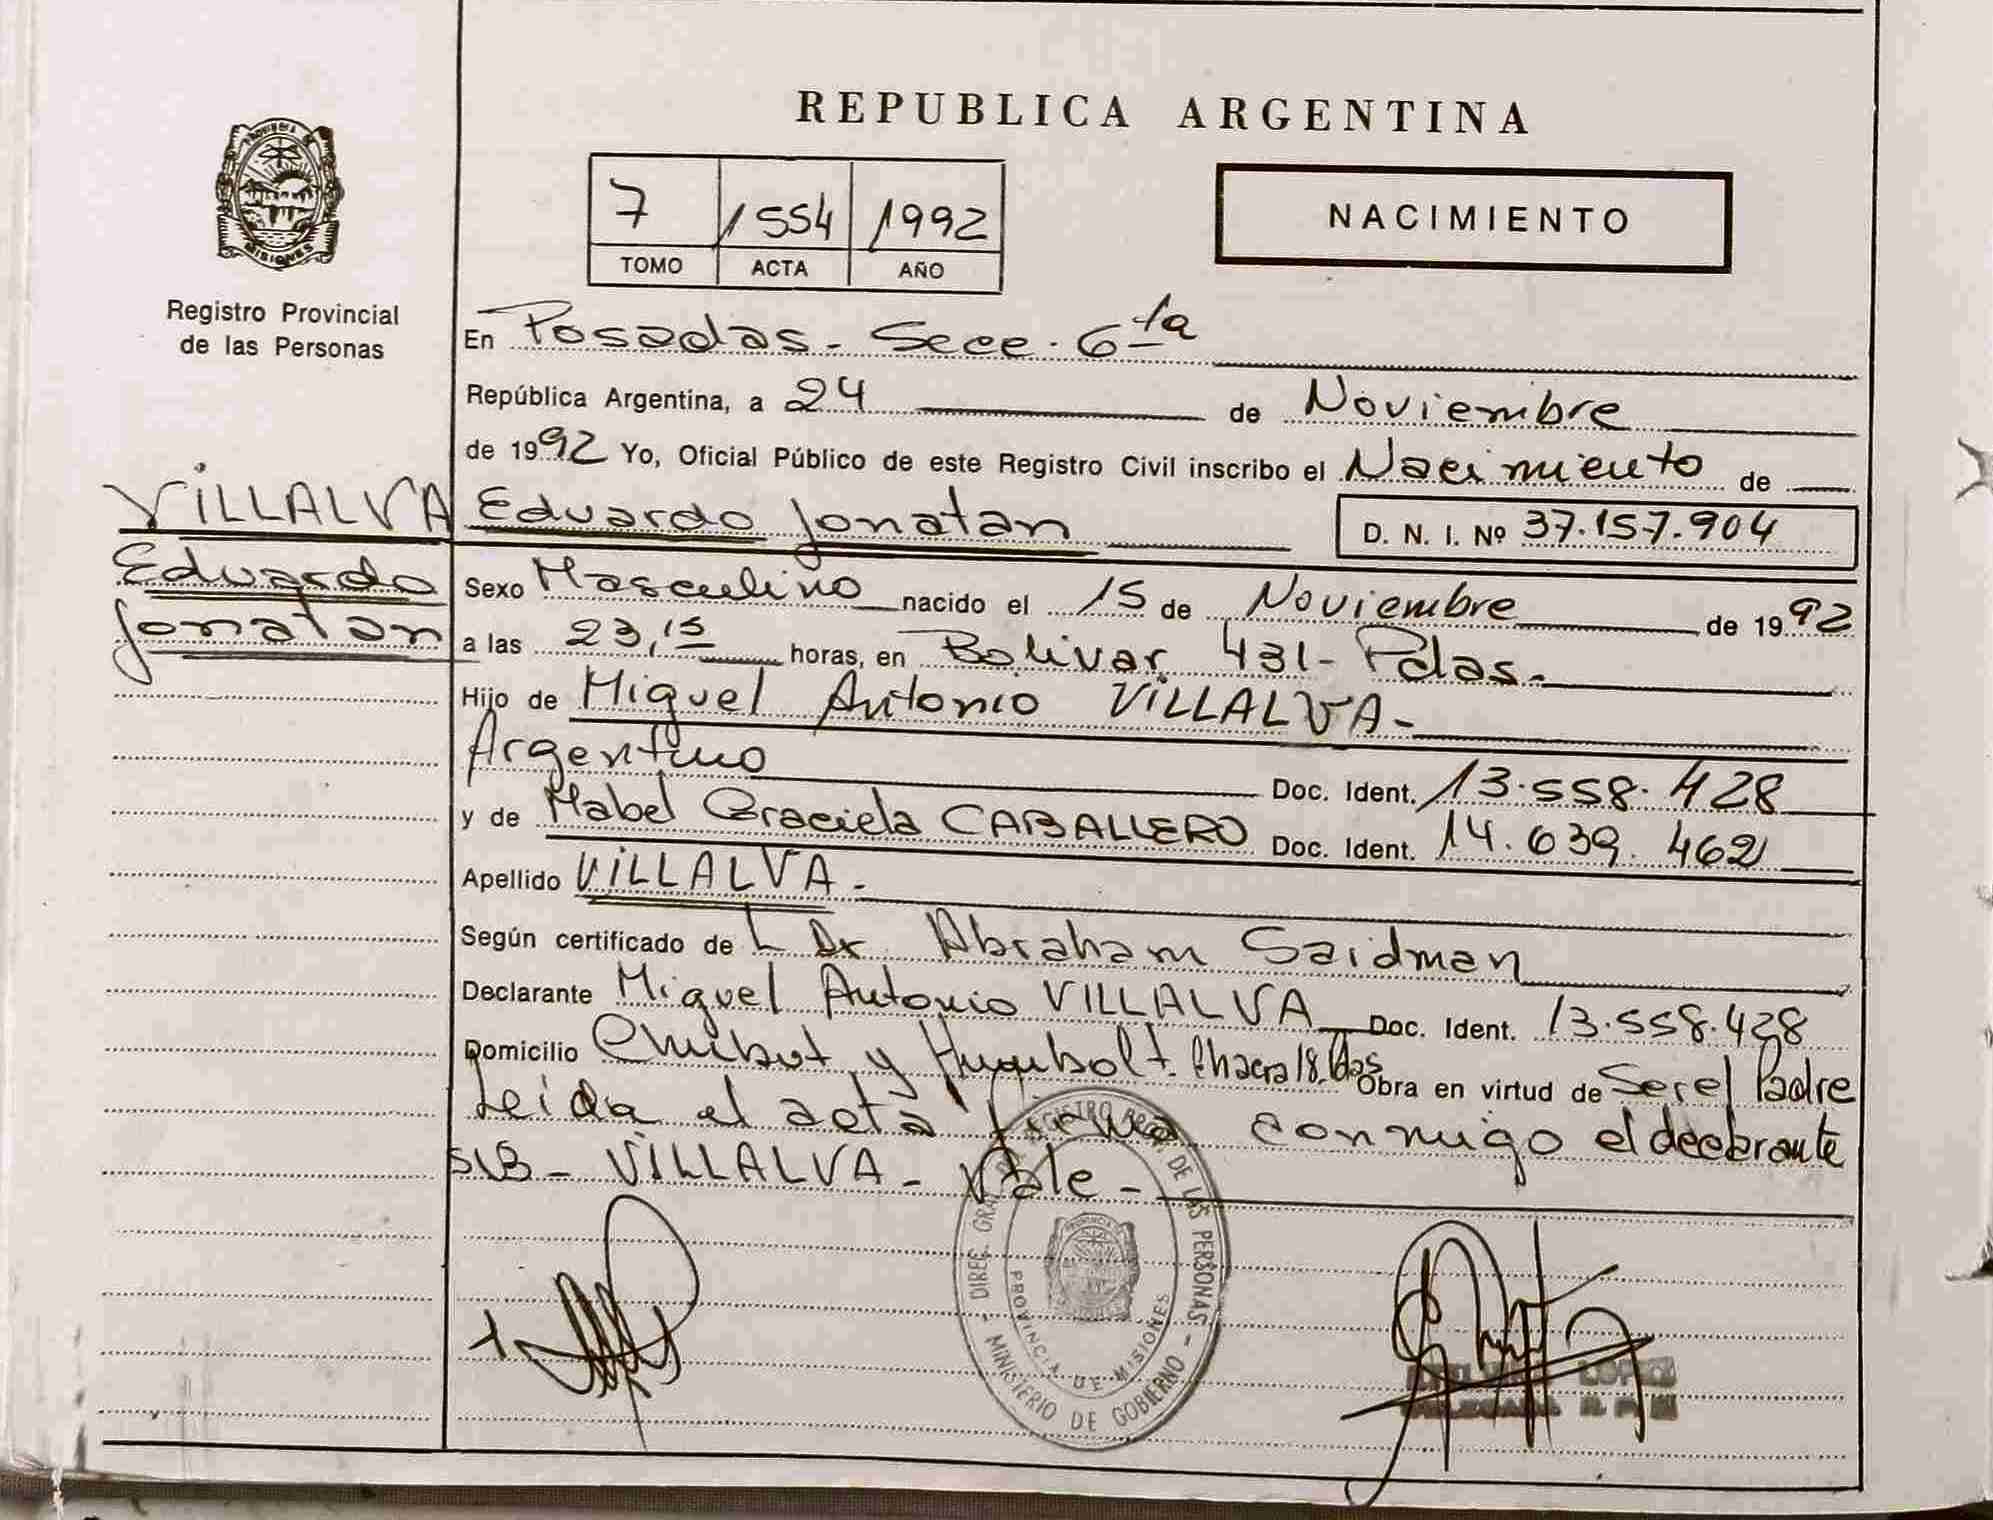 REPUBLICA ARGENTINA
PROVINCIA DE MISIONES
Registro Provincial
de las Personas
7 1554 1992
TOMO ACTA AÑO
NACIMIENTO
En Posadas - Secc. 6ta
República Argentina, a 24 de Noviembre
de 1992 Yo, Oficial Público de este Registro Civil inscribo el Nacimiento de
VILLALVA Eduardo Jonatan
D. N. I. Nº 37.157.904
Eduardo
Jonatan
Sexo Masculino nacido el 15 de Noviembre de 1992
a las 23,15 horas, en Bolivar 431- Pdas.-
Hijo de Miguel Antonio VILLALVA-
Argentino Doc. Ident. 13.558.428
y de Mabel Graciela CABALLERO Doc. Ident. 14.639.462
Apellido VILLALVA-
Según certificado de L Dr Abraham Saidman
Declarante Miguel Antonio VILLALVA Doc. Ident. 13.558.428
Domicilio Chubut y Humbolt. Chacra 18. Obra en virtud de Ser el Padre
Leida el acta firma conmigo el declarante
S/B - VILLALVA - Vale -
DIREC. GRAL. REGISTRO PROV. DE LAS PERSONAS - MINISTERIO DE GOBIERNO -
PROVINCIA DE MISIONES
LOPEZ